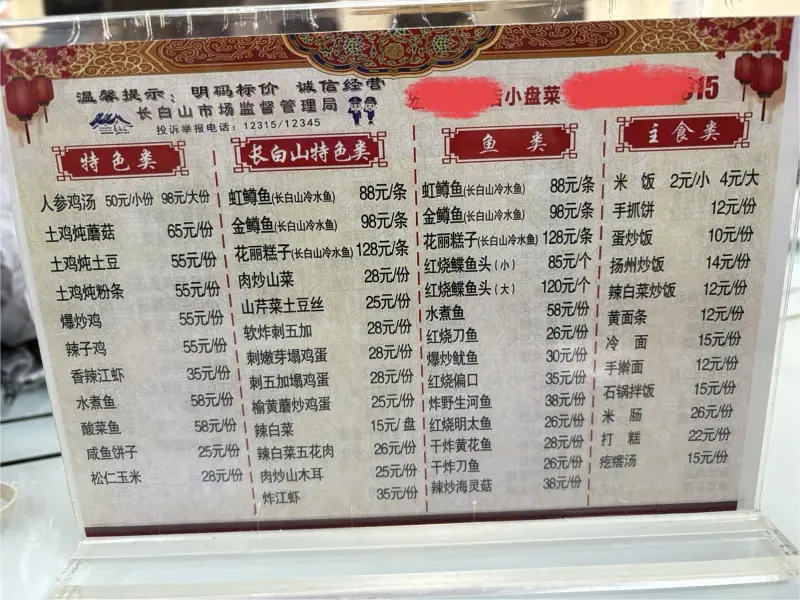 温馨提示：明码标价 诚信经营
长白山市场监督管理局
投诉举报电话：12315/12345
店小盘菜
315
特色类
人参鸡汤 50元/小份 98元/大份
土鸡炖蘑菇 65元/份
土鸡炖土豆 55元/份
土鸡炖粉条 55元/份
爆炒鸡 55元/份
辣子鸡 55元/份
香辣江虾 35元/份
水煮鱼 58元/份
酸菜鱼 58元/份
咸鱼饼子 25元/份
松仁玉米 28元/份
长白山特色类
虹鳟鱼(长白山冷水鱼) 88元/条
金鳟鱼(长白山冷水鱼) 98元/条
花丽糕子(长白山冷水鱼) 128元/条
肉炒山菜 28元/份
山芹菜土豆丝 25元/份
软炸刺五加 28元/份
刺嫩芽塌鸡蛋 28元/份
刺五加塌鸡蛋 28元/份
榆黄蘑炒鸡蛋 25元/份
辣白菜 15元/盘
辣白菜五花肉 26元/份
肉炒山木耳 25元/份
炸江虾 35元/份
鱼 类
虹鳟鱼(长白山冷水鱼) 88元/条
金鳟鱼(长白山冷水鱼) 98元/条
花丽糕子(长白山冷水鱼) 128元/条
红烧鲽鱼头(小) 85元/个
红烧鲽鱼头(大) 120元/个
水煮鱼 58元/份
红烧刀鱼 26元/份
爆炒鱿鱼 30元/份
红烧偏口 35元/份
炸野生河鱼 38元/份
红烧明太鱼 26元/份
干炸黄花鱼 28元/份
干炸刀鱼 26元/份
辣炒海灵菇 38元/份
主食类
米 饭 2元/小 4元/大
手抓饼 12元/份
蛋炒饭 10元/份
扬州炒饭 14元/份
辣白菜炒饭 12元/份
黄面条 12元/份
冷 面 15元/份
手擀面 12元/份
石锅拌饭 15元/份
米 肠 26元/份
打 糕 22元/份
疙瘩汤 15元/份